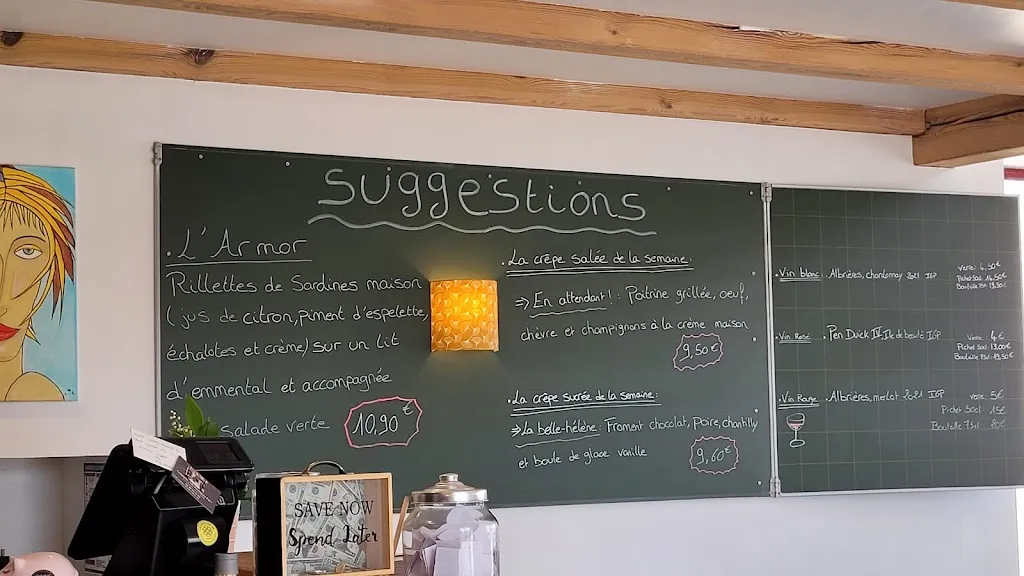 suggestions
. L'Armor
Rillettes de Sardines maison
(jus de citron, piment d'espelette,
échalotes et crème) sur un lit
d'emmental et accompagnée
salade verte 10,90€
. La crêpe salée de la semaine:
⇒ En attendant! : Poitrine grillée, oeuf,
chèvre et champignons à la crème maison
9,50€
. La crêpe sucrée de la semaine:
⇒ La belle-hélène: Froment chocolat, Poire, chantilly
et boule de glace vanille 9,60€
. Vin blanc: Albrières, chardonnay 2021 IGP
verre 4,50€
Pichet 50cl 14,50€
Bouteille 75cl 19,50€
. Vin Rosé : Pen Duick IV, Ile de beauté IGP
verre 4€
Pichet 50cl 13,00€
Bouteille 75cl 19,50€
. Vin Rouge : Albrières, merlot 2021 IGP
verre 5€
Pichet 50cl 15€
Bouteille 75cl 20€
SAVE NOW
Spend Later